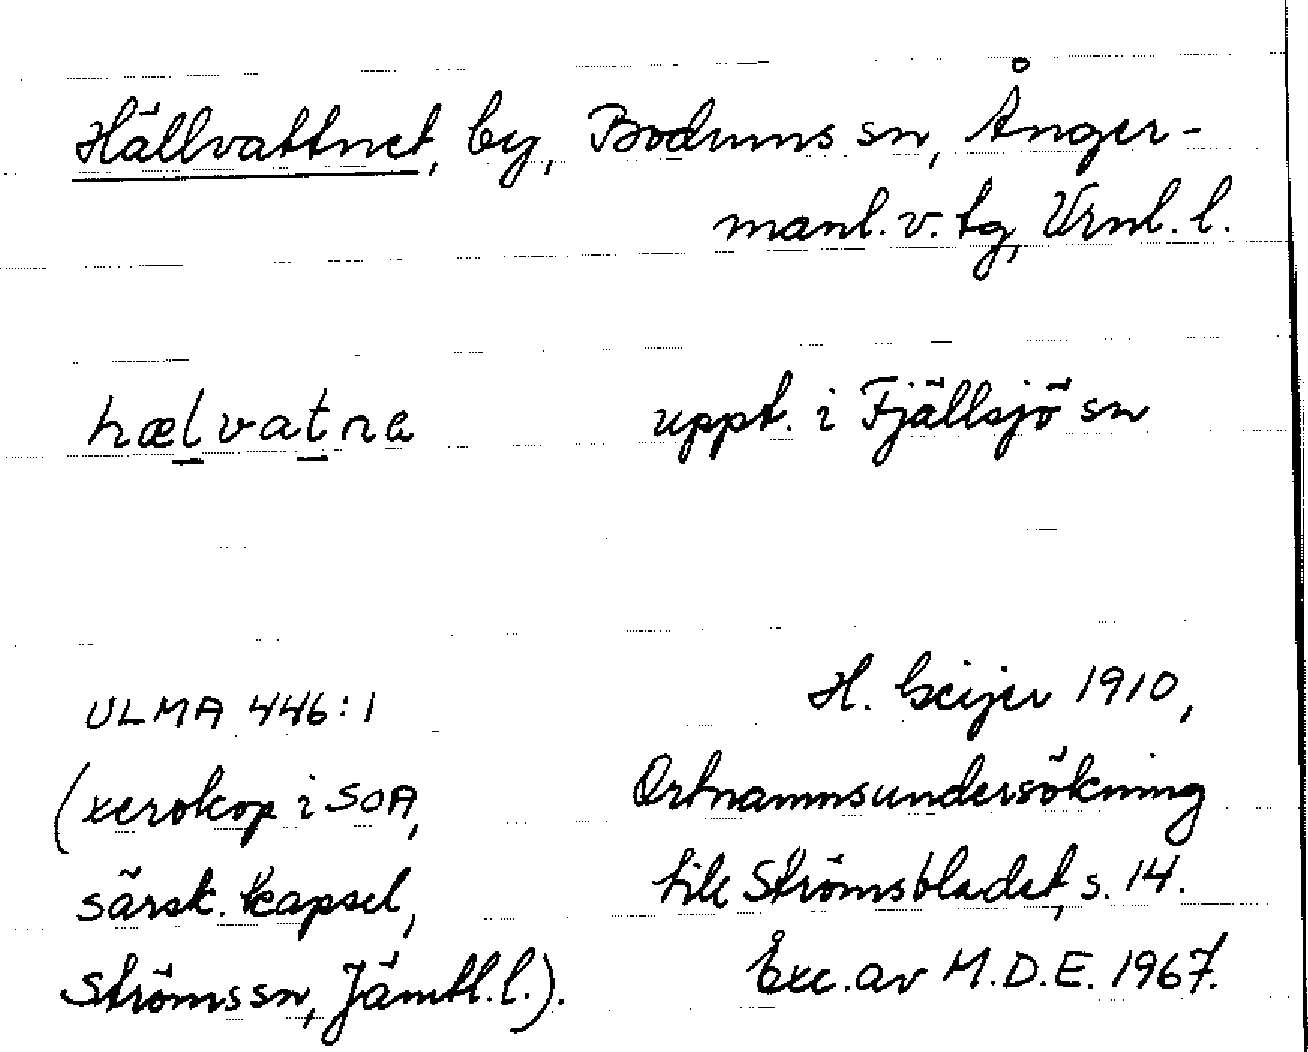 Hällvattnet, by, Bodums sn, Ånger-
manl. v. tg, Vrnl. l.
hælvatna
uppt. i Fjällsjö sn
ULMA 446:1
(xerokop i SOA,
särsk. kapsel,
Ströms sn, Jämtl. l.).
H. Geijer 1910,
Ortnamnsundersökning
till Strömsbladet, s. 14.
Exc. av M.D.E. 1967.